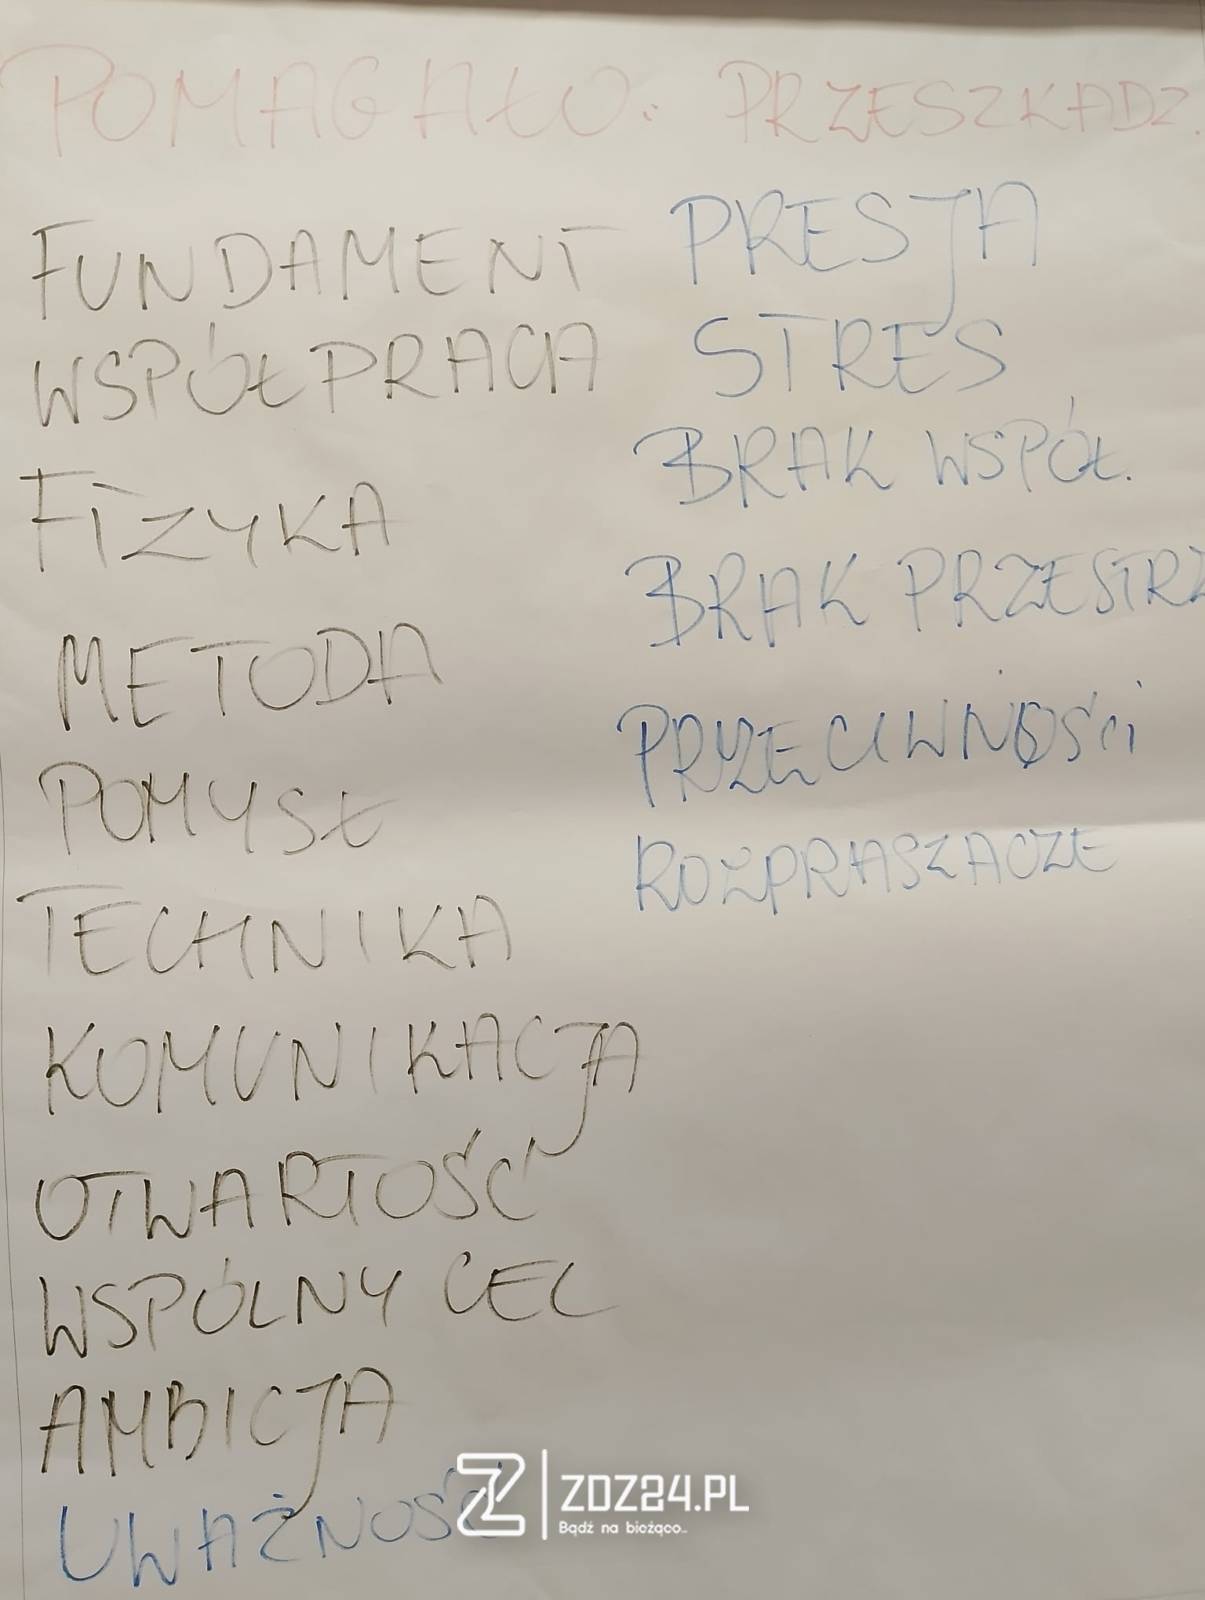 POMAGAŁO: PRZESZKADZ.
FUNDAMENT
WSPÓŁPRACA
FIZYKA
METODA
POMYSŁ
TECHNIKA
KOMUNIKACJA
OTWARTOŚĆ
WSPÓLNY CEL
AMBICJA
UWAŻNOŚĆ
PRESJA
STRES
BRAK WSPÓŁ.
BRAK PRZESTRZ
PRZECIWNOŚCI
ROZPRASZACZE
ZDZ24.PL
Bądź na bieżąco..